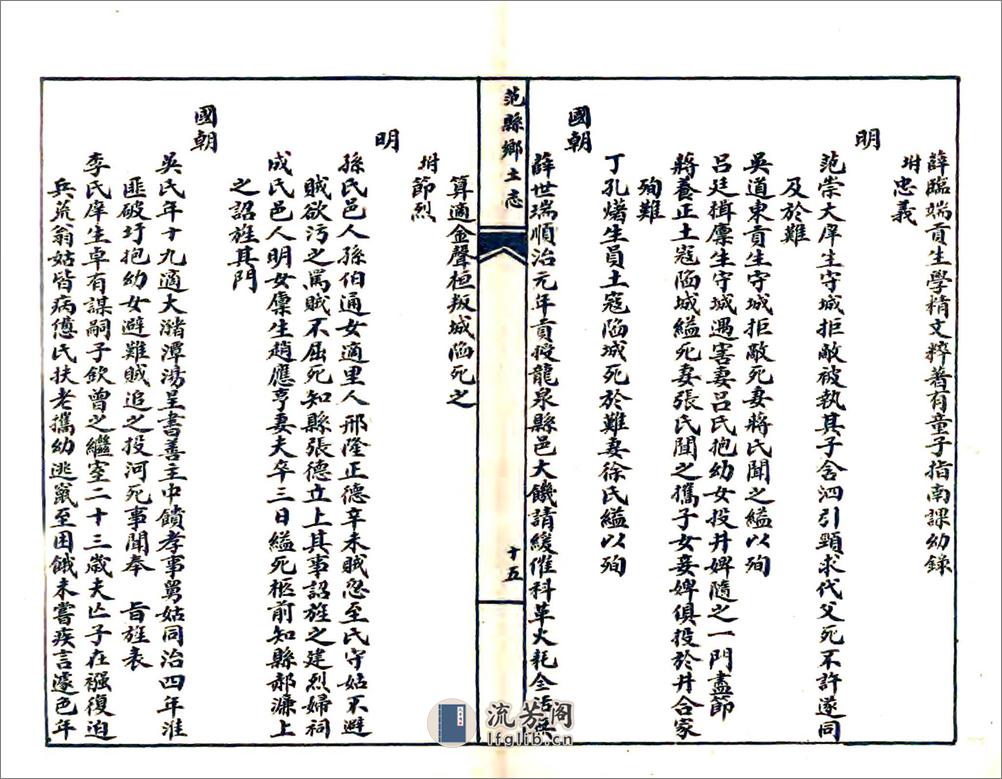 薛臨端貢生學精文粹著有童子指南課幼錄
坿忠義
明
范崇大庠生守城拒敵被執其子含泗引頸求代父死不許遂同
及於難
吳道東貢生守城拒敵死妻蔣氏聞之縊以殉
呂廷揖廩生守城遇害妻呂氏抱幼女投井婢隨之一門盡節
蔣養正土寇陷城縊死妻張氏聞之攜子女妾婢俱投於井合家
殉難
丁孔熾生員土寇陷城死於難妻徐氏縊以殉
國朝
薛世瑞順治元年貢授龍泉縣邑大饑請緩催科革火耗全活無
范縣鄉土志
十五
算適金聲桓叛城陷死之
坿節烈
明
孫氏邑人孫伯通女適里人邢隆正德辛未賊忽至氏守姑不避
賊欲污之罵賊不屈死知縣張德立上其事詔旌之建烈婦祠
成氏邑人明女廩生趙應亨妻夫卒三日縊死柩前知縣郝濂上
之詔旌其門
國朝
吳氏年十九適大潴潭湯呈書善主中饋孝事舅姑同治四年淮
匪破圩抱幼女避難賊追之投河死事聞奉 旨旌表
李氏庠生卓有謀嗣子欽曾之繼室二十三歲夫亡子在襁復迫
兵荒翁姑皆病憊氏扶老攜幼逃竄至困餓未嘗疾言遽色年
流芳阁
lfglib.cn